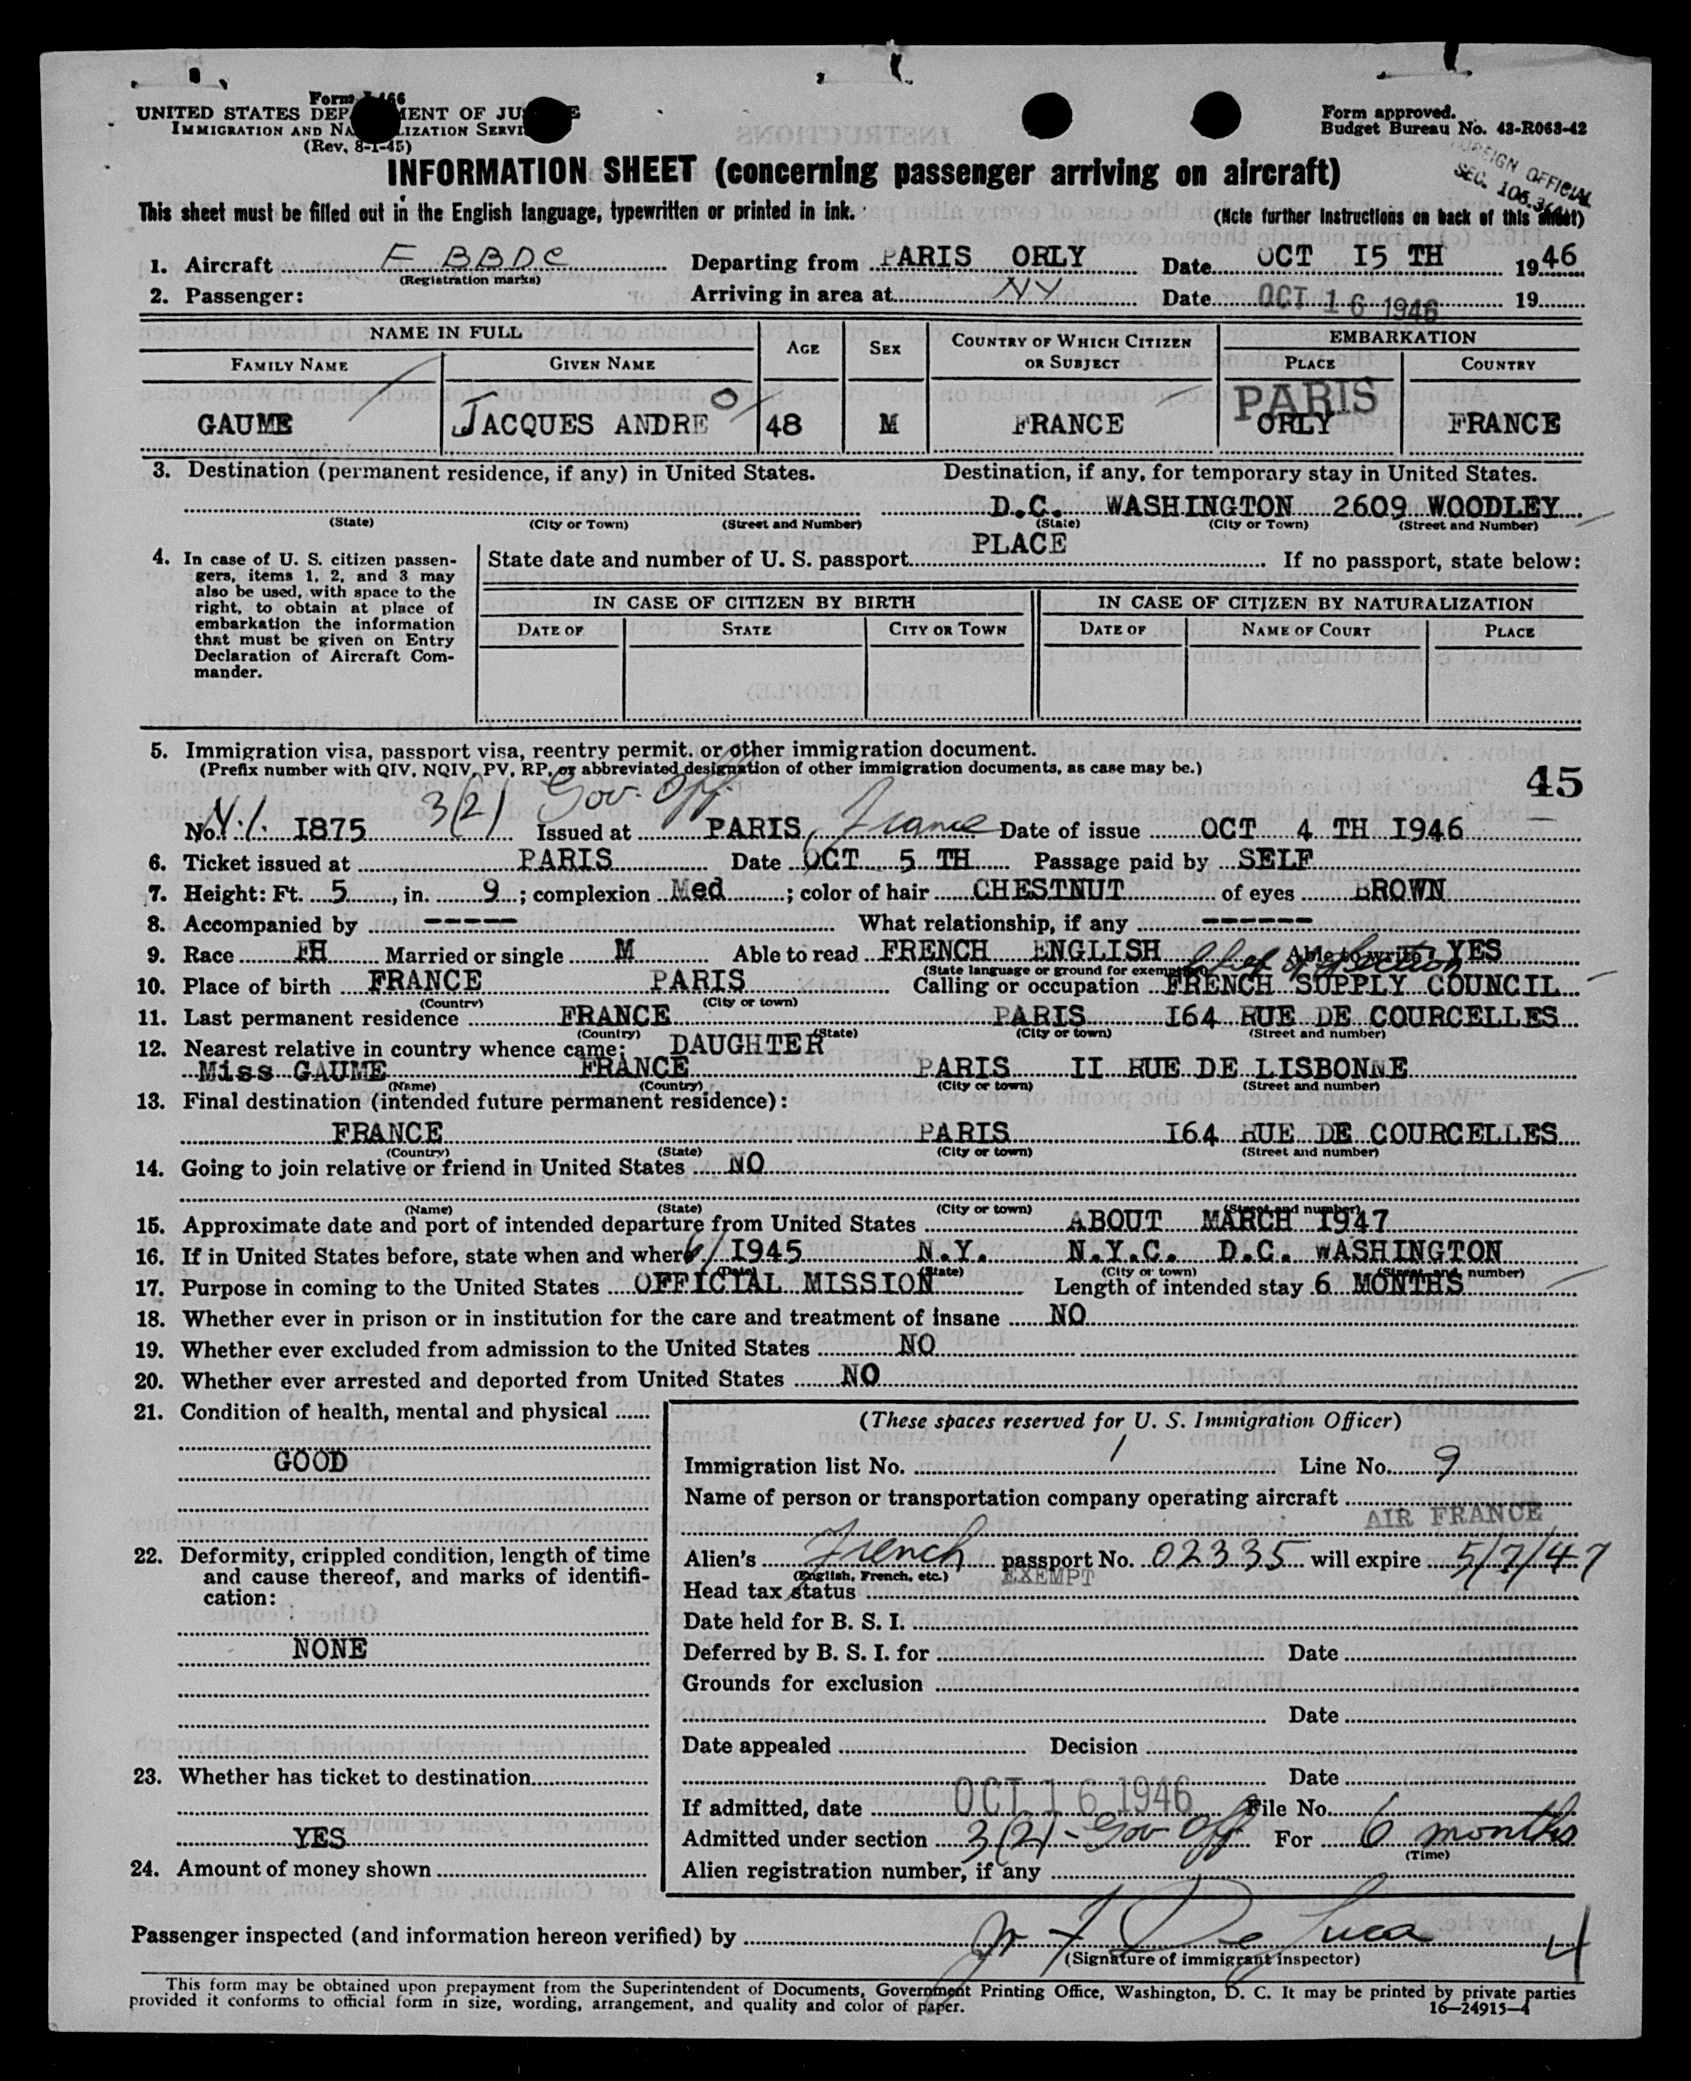 Form I-466
UNITED STATES DEPARTMENT OF JUSTICE
IMMIGRATION AND NATURALIZATION SERVICE
(Rev. 8-1-45)
Form approved.
Budget Bureau No. 43-R063-42
FOREIGN OFFICIAL
SEC. 105.3
INFORMATION SHEET (concerning passenger arriving on aircraft)
This sheet must be filled out in the English language, typewritten or printed in ink. (Note further instructions on back of this sheet)
1. Aircraft F BBDC Departing from PARIS ORLY Date OCT I5 TH 1946
(Registration marks)
2. Passenger: Arriving in area at NY Date OCT 16 1946 19
NAME IN FULL AGE SEX COUNTRY OF WHICH CITIZEN OR SUBJECT EMBARKATION
FAMILY NAME GIVEN NAME PLACE COUNTRY
PARIS
GAUME JACQUES ANDRE O 48 M FRANCE ORLY FRANCE
3. Destination (permanent residence, if any) in United States. Destination, if any, for temporary stay in United States.
D.C. WASHINGTON 2609 WOODLEY
(State) (City or Town) (Street and Number) (State) (City or Town) (Street and Number)
PLACE
4. In case of U. S. citizen passengers, items 1, 2, and 3 may also be used, with space to the right, to obtain at place of embarkation the information that must be given on Entry Declaration of Aircraft Commander.
State date and number of U. S. passport If no passport, state below:
IN CASE OF CITIZEN BY BIRTH IN CASE OF CITIZEN BY NATURALIZATION
DATE OF STATE CITY OR TOWN DATE OF NAME OF COURT PLACE
5. Immigration visa, passport visa, reentry permit, or other immigration document.
(Prefix number with QIV, NQIV, PV, RP, or abbreviated designation of other immigration documents, as case may be.)
45
3(2) Gov. Off.
No. I875 Issued at PARIS, France Date of issue OCT 4 TH I946
6. Ticket issued at PARIS Date OCT 5 TH Passage paid by SELF
7. Height: Ft. 5, in. 9; complexion Med; color of hair CHESTNUT of eyes BROWN
8. Accompanied by ----- What relationship, if any ------
9. Race FH Married or single M Able to read FRENCH ENGLISH Able to write YES
(State language or ground for exemption) Chief of Section
10. Place of birth FRANCE PARIS Calling or occupation FRENCH SUPPLY COUNCIL
(Country) (City or town)
11. Last permanent residence FRANCE PARIS I64 RUE DE COURCELLES
(Country) (State) (City or town) (Street and number)
12. Nearest relative in country whence came: DAUGHTER
Miss GAUME FRANCE PARIS II RUE DE LISBONNE
(Name) (Country) (City or town) (Street and number)
13. Final destination (intended future permanent residence):
FRANCE PARIS I64 RUE DE COURCELLES
(Country) (State) (City or town) (Street and number)
14. Going to join relative or friend in United States NO
(Name) (State) (City or town) (Street and number)
15. Approximate date and port of intended departure from United States ABOUT MARCH I947
16. If in United States before, state when and where 6/ I945 N.Y. N.Y.C. D.C. WASHINGTON
(Date) (State) (City or town) (Street and number)
17. Purpose in coming to the United States OFFICIAL MISSION Length of intended stay 6 MONTHS
18. Whether ever in prison or in institution for the care and treatment of insane NO
19. Whether ever excluded from admission to the United States NO
20. Whether ever arrested and deported from United States NO
21. Condition of health, mental and physical
GOOD
22. Deformity, crippled condition, length of time and cause thereof, and marks of identification:
NONE
23. Whether has ticket to destination
YES
24. Amount of money shown
(These spaces reserved for U. S. Immigration Officer)
Immigration list No. 1 Line No. 9
Name of person or transportation company operating aircraft
AIR FRANCE
Alien's French passport No. 02335 will expire 5/7/47
(English, French, etc.) EXEMPT
Head tax status
Date held for B. S. I.
Deferred by B. S. I. for Date
Grounds for exclusion
Date
Date appealed Decision
Date
If admitted, date OCT 16 1946 File No.
Admitted under section 3(2) - Gov Off For 6 months
(Time)
Alien registration number, if any
Passenger inspected (and information hereon verified) by F De Luca 4
(Signature of immigrant inspector)
This form may be obtained upon prepayment from the Superintendent of Documents, Government Printing Office, Washington, D. C. It may be printed by private parties
provided it conforms to official form in size, wording, arrangement, and quality and color of paper. 16—24915-4